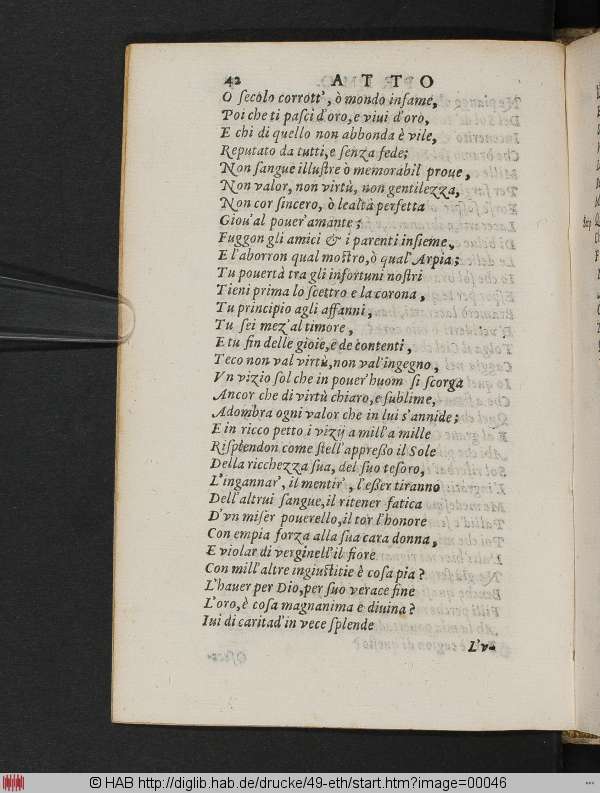 42 ATTO
O secolo corrott', ò mondo infame,
Poi che ti pasci d'oro, e viui d'oro,
E chi di quello non abbonda è vile,
Reputato da tutti, e senza fede;
Non sangue illustre ò memorabil proue,
Non valor, non virtù, non gentilezza,
Non cor sincero, ò lealtà perfetta
Giou' al pouer' amante;
Fuggon gli amici & i parenti insieme,
E l'aborron qual mostro, ò qual' Arpia;
Tu pouertà tra gli infortuni nostri
Tieni prima lo scettro e la corona,
Tu principio agli affanni,
Tu sei mez' al timore,
E tu fin delle gioie, e de contenti,
Teco non val virtù, non val' ingegno,
Vn vizio sol che in pouer' huom si scorga
Ancor che di virtù chiaro, e sublime,
Adombra ogni valor che in lui s'annide;
E in ricco petto i vizij a mill' a mille
Risplendon come stell' appresso il Sole
Della ricchezza sua, del suo tesoro,
L'ingannar', il mentir', l'esser tiranno
Dell' altrui sangue, il ritener fatica
D'vn miser pouerello, il tor l'honore
Con empia forza alla sua cara donna,
E violar di verginell' il fiore
Con mill' altre ingiustitie è cosa pia?
L'hauer per Dio, per suo verace fine
L'oro, è cosa magnanima e diuina?
Iui di caritad' in vece splende
L'v-
© HAB http://diglib.hab.de/drucke/49-eth/start.htm?image=00046